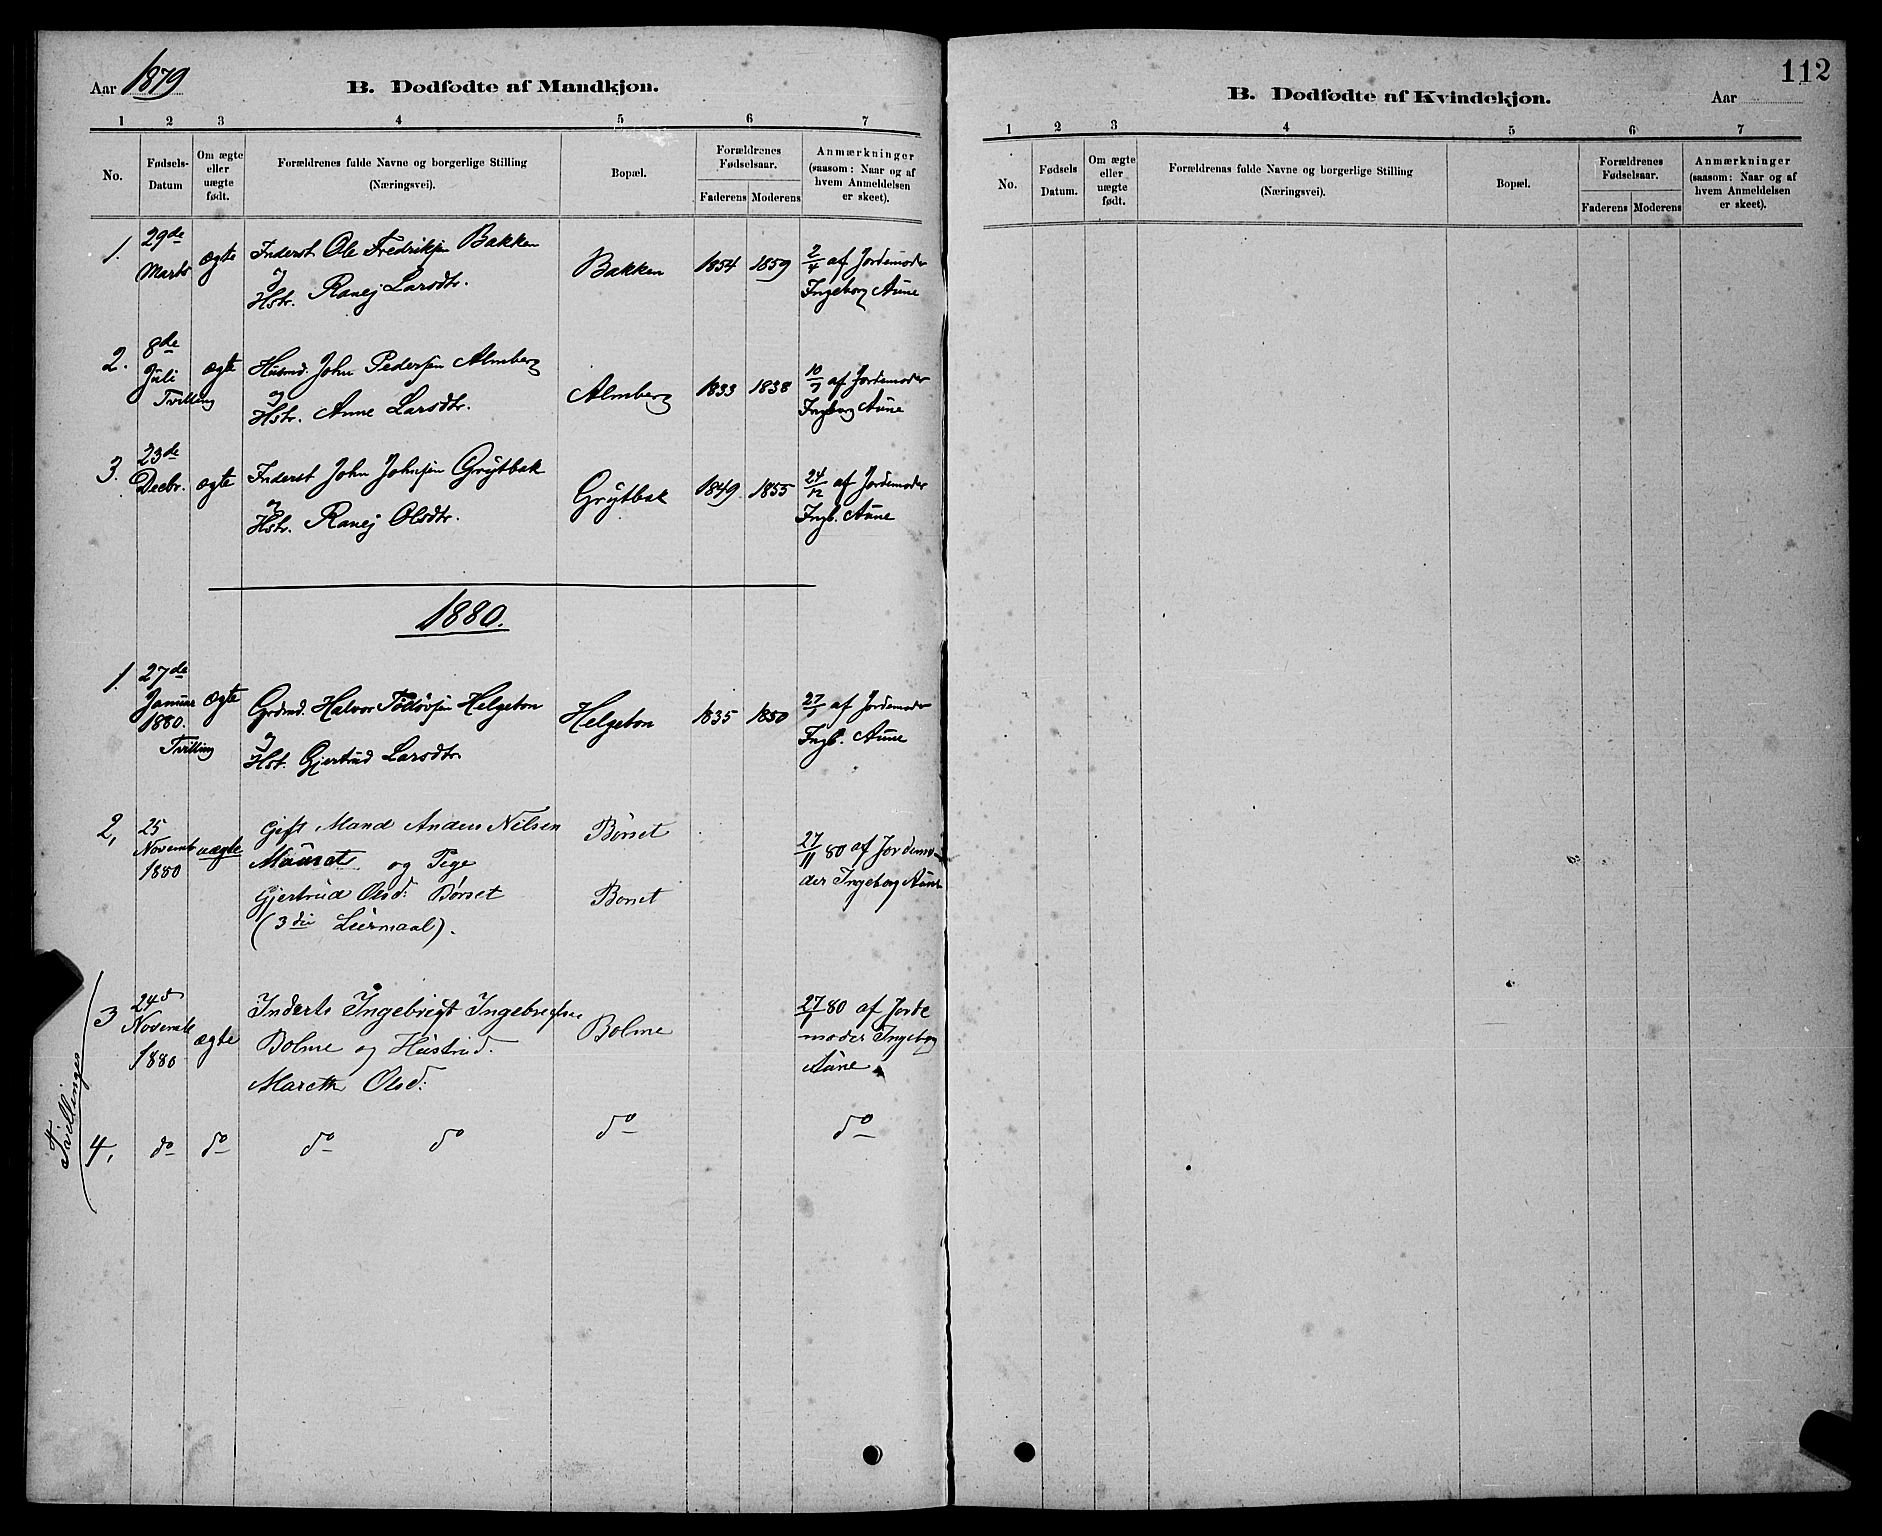 Aar 1879
B. Dødfødte af Mandkjøn.
1 2 3 4 5 6 7
No. Fødsels-Datum Om ægte eller uægte født. Forældrenes fulde Navne og borgerlige Stilling (Næringsvei). Bopæl. Forældrenes Fødselsaar. Faderens Moderens Anmærkninger (saasom: Naar og af hvem Anmeldelsen er skeet).
1. 29de Marts ægte Inderst Ole Fredriksen Bakken
og
Hstr. Ranej Larsdtr.
Bakken 1854 1859 2/4 af Jordemoder
Ingeborg Aune
2. 8de Juli Tvilling ægte Husmd. John Pedersen Almberg
og
Hstr. Anne Larsdtr.
Almberg 1833 1838 10/7 af Jordemoder
Ingborg Aune
3. 23de Decbr. ægte Inderst John Johnsen Grytbak
og
Hstr. Ranej Olsdtr.
Grytbak 1849. 1855 24/12 af Jordemoder
Ingb. Aune
1880.
1. 27de Januar 1880. Tvilling ægte Grdmd. Halvor Helgeton
og
Hst. Gjertrud Larsdtr.
Helgeton 1835 1850 27/1 af Jordemoder
Ingb. Aune
2, 25 Novemb 1880 uægte Gift Mand Anders Nilsen
og Pige
Gjertrud Olsd: Børset
(3die Leiermaal).
Børset
Børset
27/11 80 af Jordemo-
der Ingeborg Aune
Tvillinger
3 24d Novembe 1880 ægte Inderts Ingebrigt Ingebrigtsen
Bolme og Hustrud.
Mareth Olsd:
Bolme
27/1 80 af Jorde
moder Ingeborg
Aune
4, do do do do do do
B. Dødfødte af Kvindekjøn.
Aar
112
1 2 3 4 5 6 7
No. Fødsels Datum. Om ægte eller uægte født. Forældrenas fulde Navne og borgerlige Stilling (Næringsvei). Bopæl. Forældrenes Fødselsaar. Faderens Moderens Anmærkninger (saasom: Naar og af hvem Anmeldelsen er skeet).